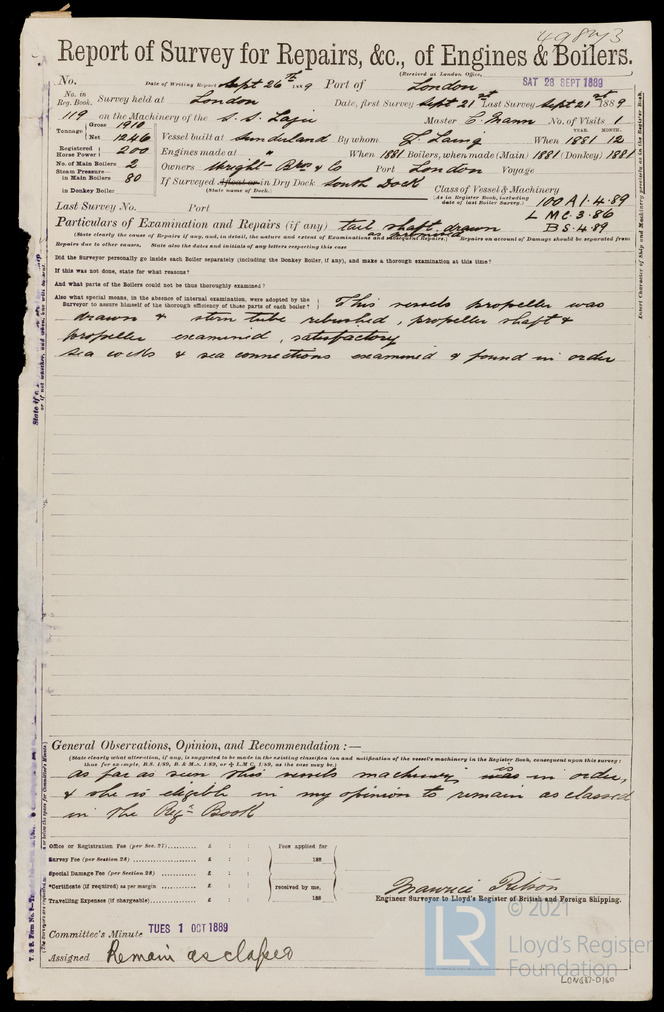 49873
Report of Survey for Repairs, &c., of Engines & Boilers.
(Received at London Office, SAT 28 SEPT 1889
No. Date of Writing Report Sept 26th 1889 Port of London
No. in Reg. Book. Survey held at London Date, first Survey Sept 21st Last Survey Sept 21st 1889
119 on the Machinery of the S.S. Master C. Mann No. of Visits 1
Tonnage Gross 1910 Net 1246 Vessel built at Sunderland By whom J. Laing When YEAR. 1881 MONTH. 12
Registered Horse Power 200 Engines made at " When 1881 Boilers, when made (Main) 1881 (Donkey) 1881
No. of Main Boilers 2 Owners Wright Bros & Co Port London Voyage
Steam Pressure in Main Boilers 80 If Surveyed Afloat or in Dry Dock South Dock
(State name of Dock.)
in Donkey Boiler
Class of Vessel & Machinery
(As in Register Book, including date of last Boiler Survey.)
100 A 1. 4. 89
L M C. 3. 86
B S. 4. 89
Last Survey No. Port
Particulars of Examination and Repairs (if any) tail shaft drawn
(State clearly the cause of Repairs if any, and, in detail, the nature and extent of Examinations and subsequent Repairs.) Repairs on account of Damage should be separated from
Repairs due to other causes. State also the dates and initials of any letters respecting this case
Did the Surveyor personally go inside each Boiler separately (including the Donkey Boiler, if any), and make a thorough examination at this time?
If this was not done, state for what reasons?
And what parts of the Boilers could not be thus thoroughly examined?
Also what special means, in the absence of internal examination, were adopted by the Surveyor to assure himself of the thorough efficiency of those parts of each boiler?
This vessels propeller was
drawn & stern tube rebushed, propeller shaft &
propeller examined, satisfactory
sea cocks & sea connections examined & found in order
General Observations, Opinion, and Recommendation :—
(State clearly what alteration, if any, is suggested to be made in the existing classification and notification of the vessel's machinery in the Register Book, consequent upon this survey:
thus for example, B.S. 1/89, B. & M.S. 1/89, or L.M.C. 1/89, as the case may be.)
as far as seen this vessels machinery is was in order,
& she is eligible in my opinion to remain as classed
in the Regr Book
Office or Registration Fee (per Sec. 27) £ : : Fees applied for
Survey Fee (per Section 28) £ : : 188
Special Damage Fee (per Section 28) £ : :
*Certificate (if required) as per margin £ : : received by me,
Travelling Expenses (if chargeable) £ : : 188
Maurice Pitson
Engineer Surveyor to Lloyd's Register of British and Foreign Shipping.
Committee's Minute TUES 1 OCT 1889
Assigned Remain as classed
© 2021
LR
Lloyd's Register
Foundation
LON687-0160